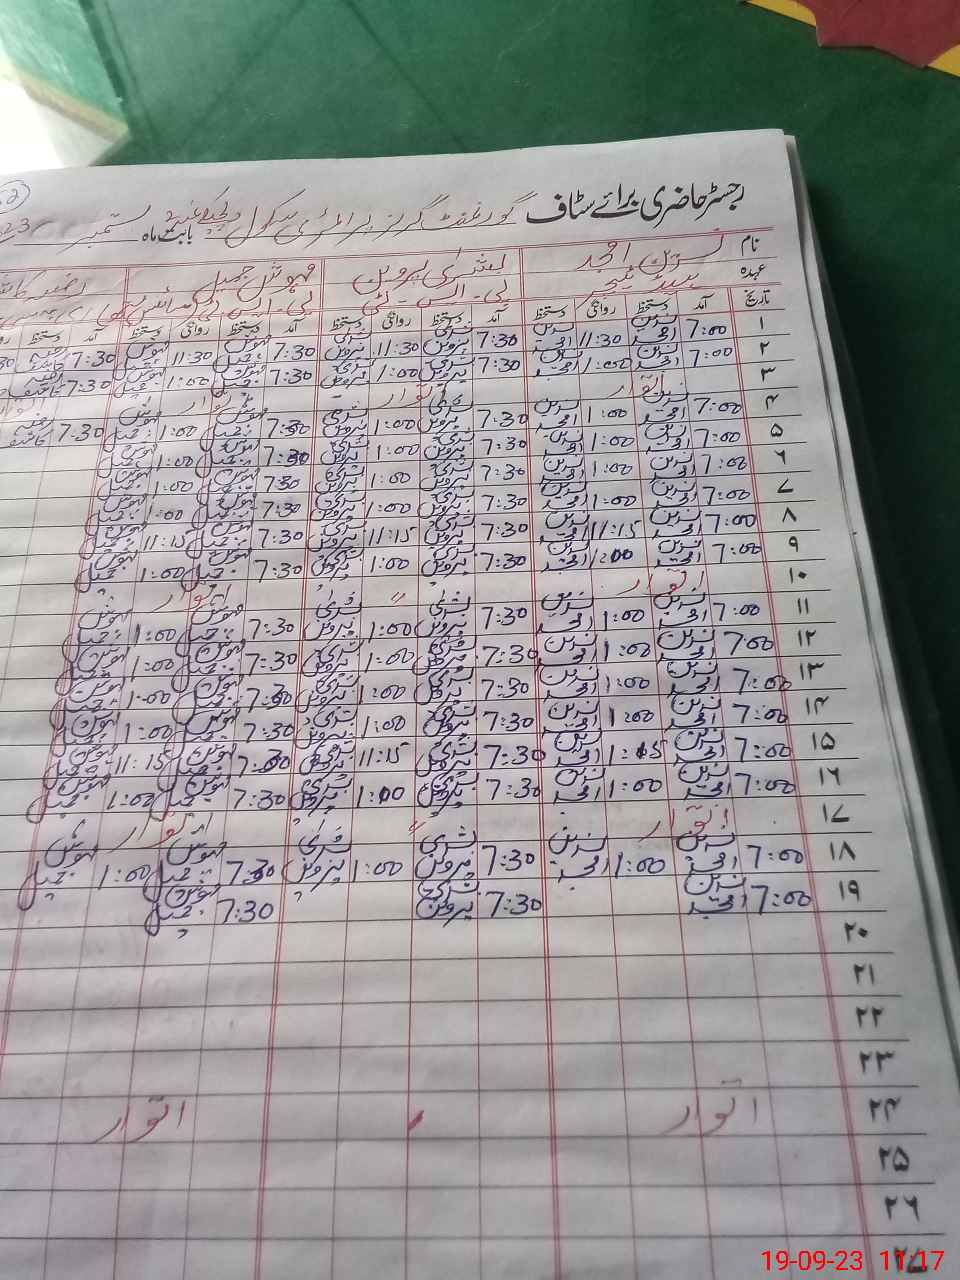 رجسٹر حاضری برائے سٹاف گورنمنٹ گرلز پرائمری سکول بابت ماہ ستمبر
نام نسرین امجد بشریٰ پروین مہوش جمیل
عہدہ ہیڈ ٹیچر پی - ایس - ٹی
تاریخ آمد دستخط روانگی دستخط آمد دستخط روانگی دستخط آمد دستخط روانگی دستخط آمد دستخط
۱ 7:00 نسرین امجد 11:30 نسرین امجد 7:30 بشریٰ پروین 11:30 بشریٰ پروین 7:30 مہوش جمیل 11:30 مہوش جمیل 7:30
۲ 7:00 نسرین امجد 1:00 نسرین امجد 7:30 بشریٰ پروین 1:00 بشریٰ پروین 7:30 مہوش جمیل 1:00 مہوش جمیل 7:30
۳ اتوار اتوار اتوار
۴ 7:00 نسرین امجد 1:00 نسرین امجد 7:30 بشریٰ پروین 1:00 بشریٰ پروین 7:30 مہوش جمیل 1:00 مہوش جمیل 7:30
۵ 7:00 نسرین امجد 1:00 نسرین امجد 7:30 بشریٰ پروین 1:00 بشریٰ پروین 7:30 مہوش جمیل 1:00 مہوش جمیل
۶ 7:00 نسرین امجد 1:00 نسرین امجد 7:30 بشریٰ پروین 1:00 بشریٰ پروین 7:30 مہوش جمیل 1:00 مہوش جمیل
۷ 7:00 نسرین امجد 1:00 نسرین امجد 7:30 بشریٰ پروین 1:00 بشریٰ پروین 7:30 مہوش جمیل 1:00 مہوش جمیل
۸ 7:00 نسرین امجد 11:15 نسرین امجد 7:30 بشریٰ پروین 11:15 بشریٰ پروین 7:30 مہوش جمیل 11:15 مہوش جمیل
۹ 7:00 نسرین امجد 1:00 نسرین امجد 7:30 بشریٰ پروین 1:00 بشریٰ پروین 7:30 مہوش جمیل 1:00 مہوش جمیل
۱۰ اتوار " اتوار
۱۱ 7:00 نسرین امجد 1:00 نسرین امجد 7:30 بشریٰ پروین 1:00 بشریٰ پروین 7:30 مہوش جمیل 1:00 مہوش جمیل
۱۲ 7:00 نسرین امجد 1:00 نسرین امجد 7:30 بشریٰ پروین 1:00 بشریٰ پروین 7:30 مہوش جمیل 1:00 مہوش جمیل
۱۳ 7:00 نسرین امجد 1:00 نسرین امجد 7:30 بشریٰ پروین 1:00 بشریٰ پروین 7:30 مہوش جمیل 1:00 مہوش جمیل
۱۴ 7:00 نسرین امجد 1:00 نسرین امجد 7:30 بشریٰ پروین 1:00 بشریٰ پروین 7:30 مہوش جمیل 1:00 مہوش جمیل
۱۵ 7:00 نسرین امجد 1:15 نسرین امجد 7:30 بشریٰ پروین 11:15 بشریٰ پروین 7:30 مہوش جمیل 11:15 مہوش جمیل
۱۶ 7:00 نسرین امجد 1:00 نسرین امجد 7:30 بشریٰ پروین 1:00 بشریٰ پروین 7:30 مہوش جمیل 1:00 مہوش جمیل
۱۷ اتوار " اتوار
۱۸ 7:00 نسرین امجد 1:00 نسرین امجد 7:30 بشریٰ پروین 1:00 بشریٰ پروین 7:30 مہوش جمیل 1:00 مہوش جمیل
۱۹ 7:00 نسرین امجد 7:30 بشریٰ پروین 7:30 مہوش جمیل
۲۰
۲۱
۲۲
۲۳
۲۴ اتوار اتوار
۲۵
۲۶
19-09-23 11:17